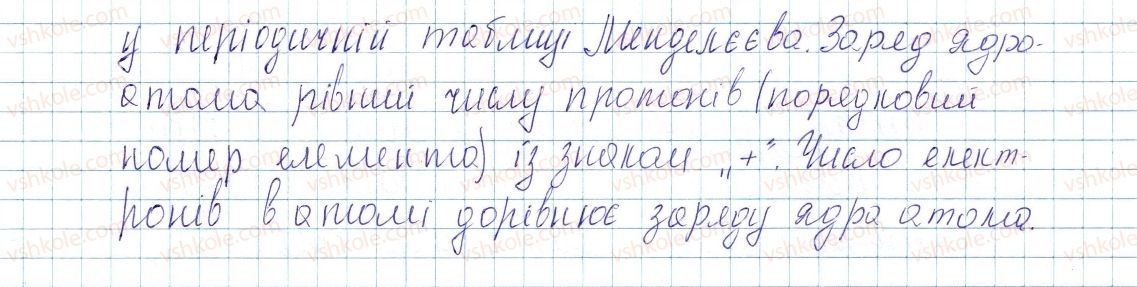 у періодичній таблиці Менделєєва. Заряд ядро-
атома рівний числу протонів (порядковий
номер елемента) із знаком „+". Число елект-
ронів в атомі дорівнює заряду ядра атома.